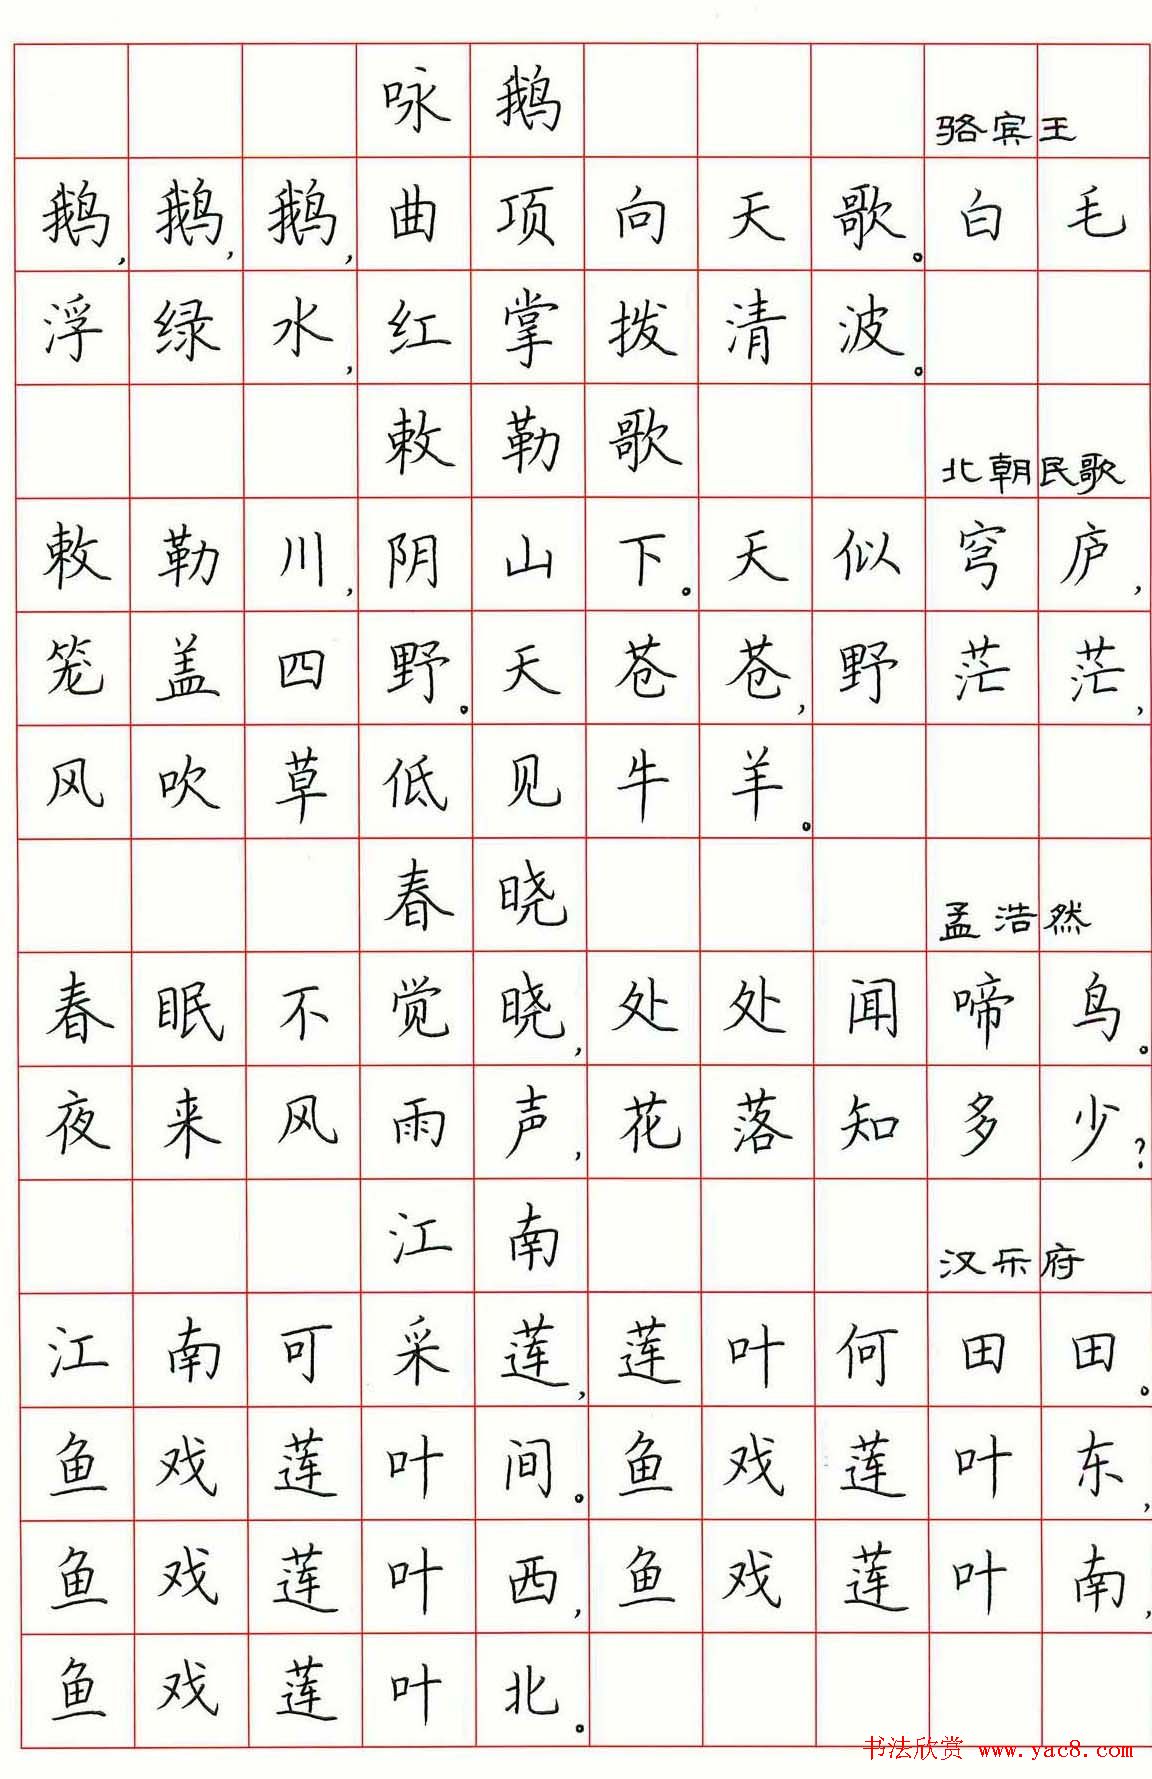 咏鹅 骆宾王
鹅,鹅,鹅,曲项向天歌。白毛
浮绿水,红掌拨清波。
敕勒歌 北朝民歌
敕勒川,阴山下。天似穹庐,
笼盖四野。天苍苍,野茫茫,
风吹草低见牛羊。
春晓 孟浩然
春眠不觉晓,处处闻啼鸟。
夜来风雨声,花落知多少?
江南 汉乐府
江南可采莲,莲叶何田田。
鱼戏莲叶间。鱼戏莲叶东,
鱼戏莲叶西,鱼戏莲叶南,
鱼戏莲叶北。
书法欣赏 www.yac8.com